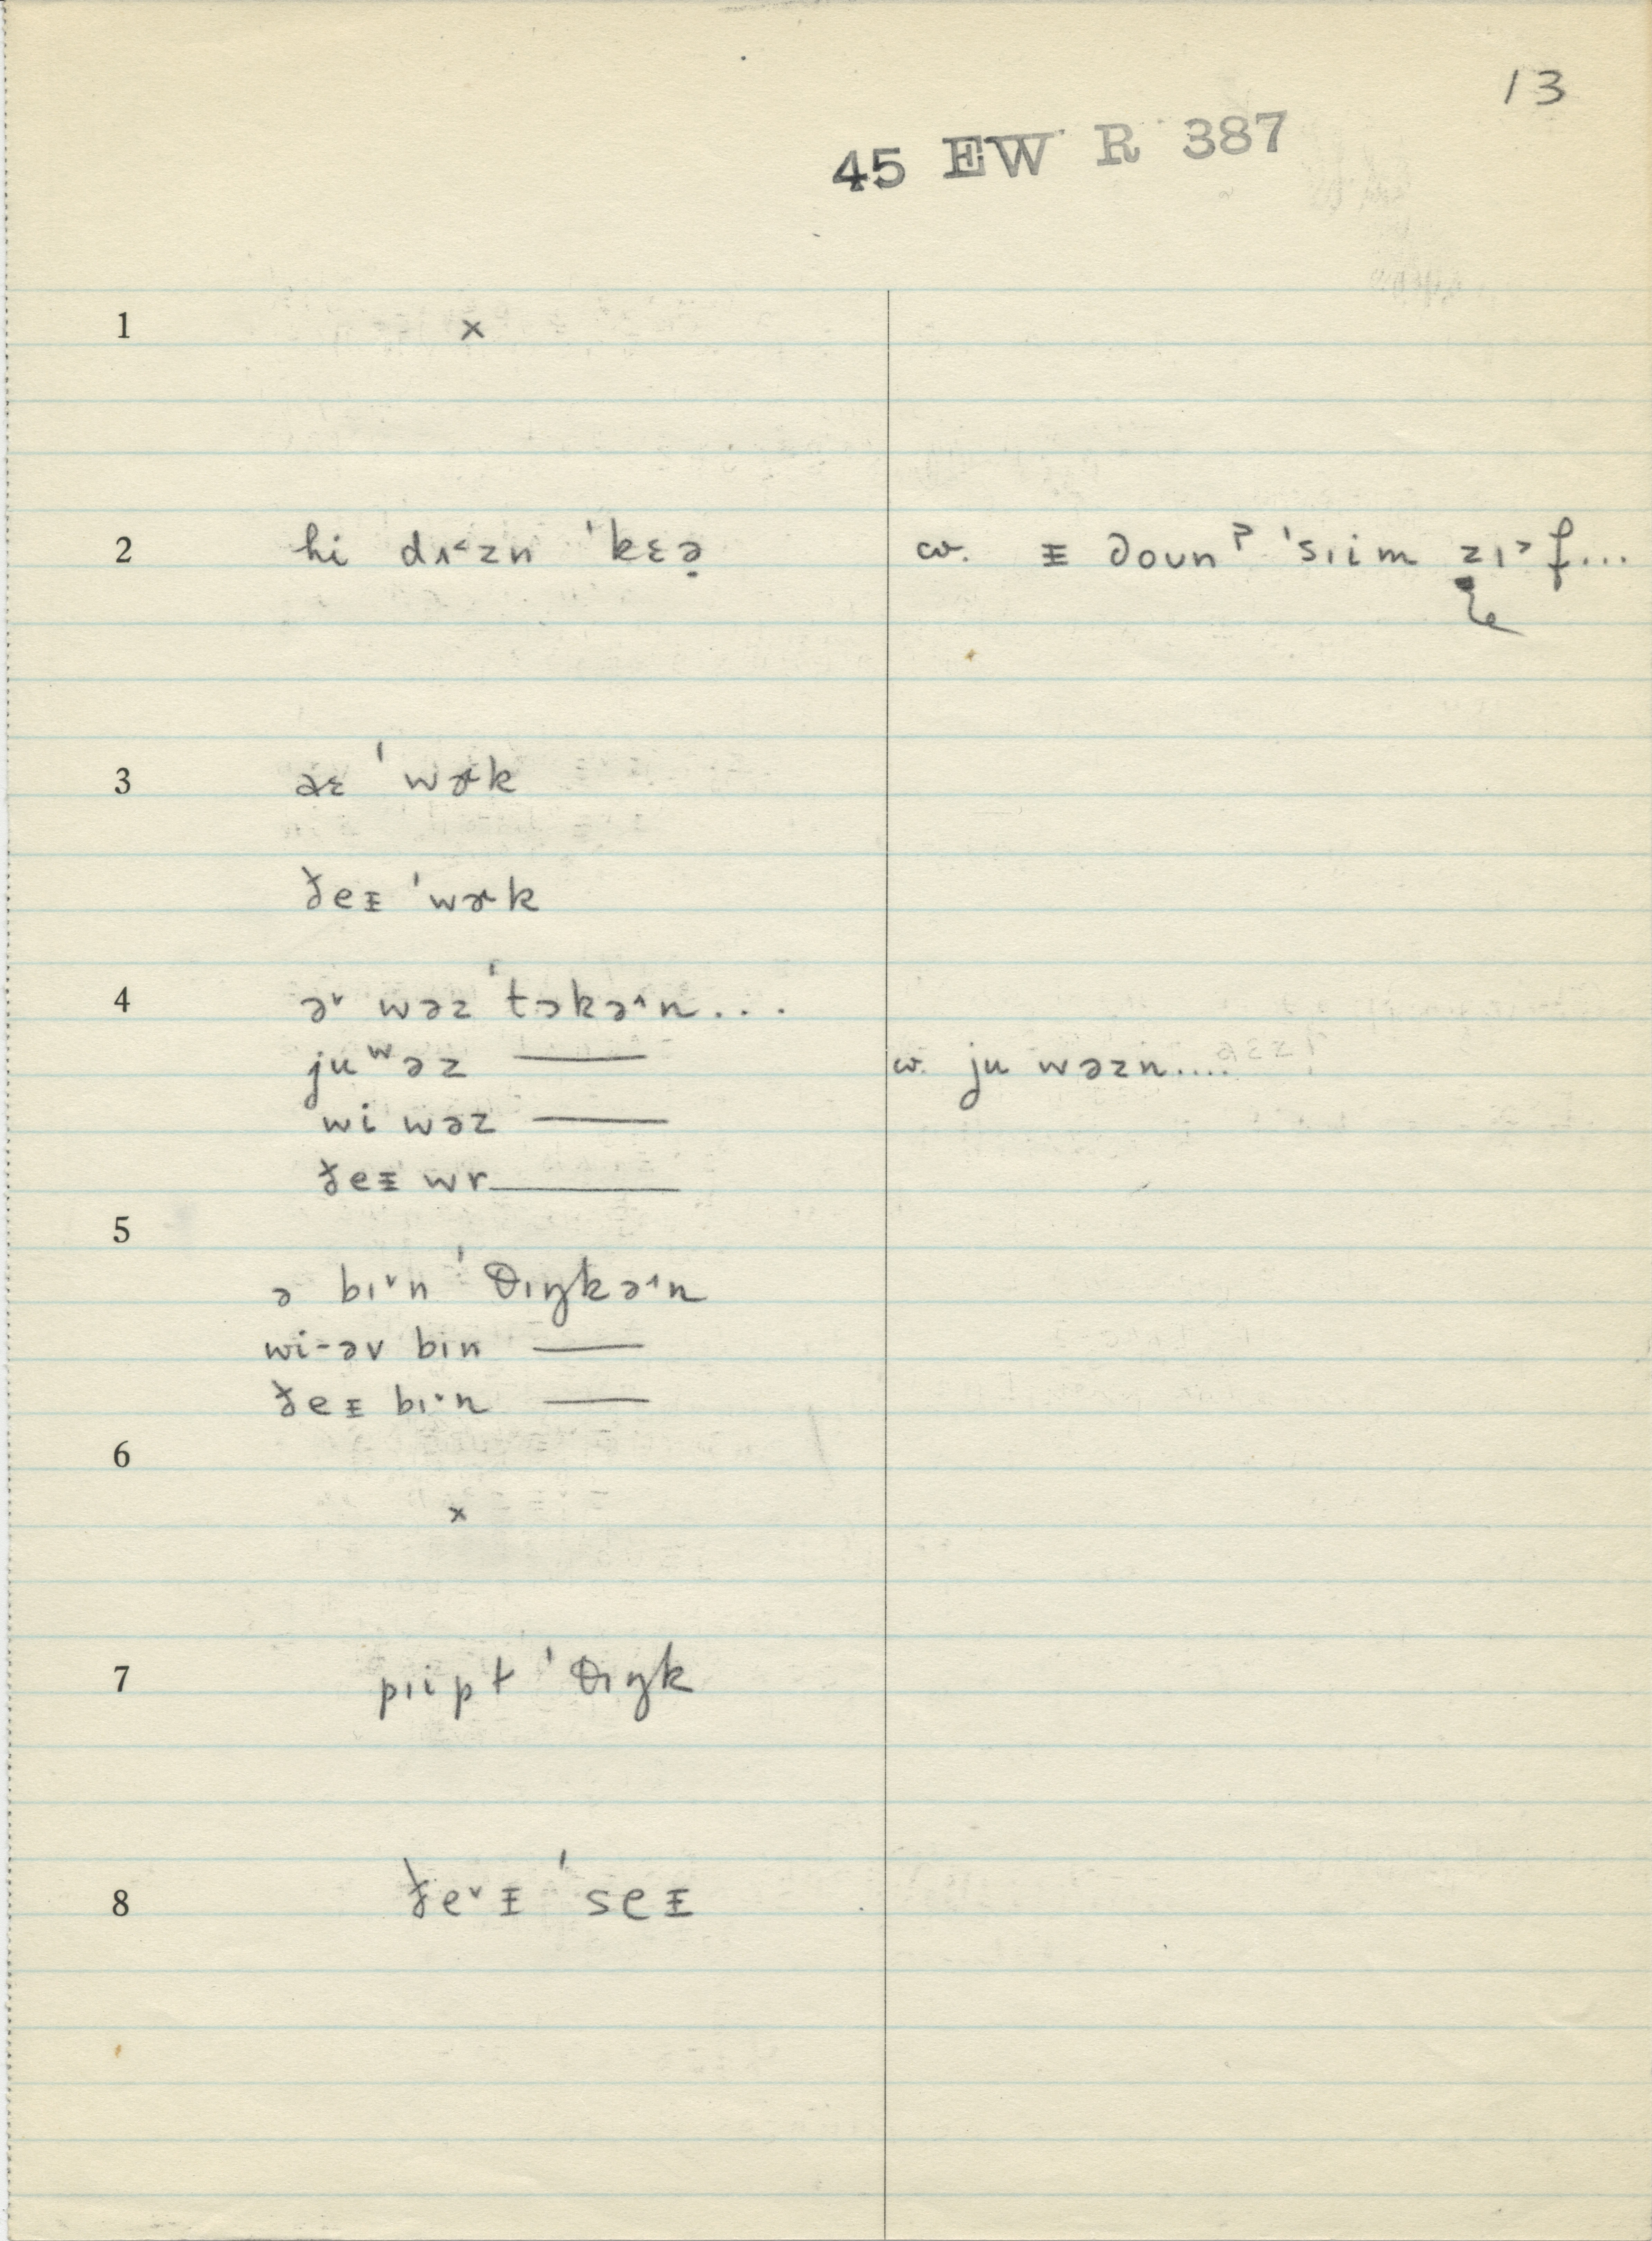 13
45 EW R 387
1 ×
2 hi dɪ˂zn ˈkɛə̣ cv. ᵻ ðoʊnˀ ˈsɪim zɪ˃f...
3 ˈwɚk
ðeᵻ ˈwɚk
4 ə˅ wəz ˈtɔkə˄n...
juʷəz —— cv. ju wəzn....
wi wəz ——
ðeᵻ wr ——
5
ə bɪ˅n ˈθɪŋkə˄n
wi-əv bɪn ——
ðeᵻ bɪ˅n ——
6
×
7 pɪipɫ ˈθɪŋk
8 ðe˅ᵻ ˈseᵻ